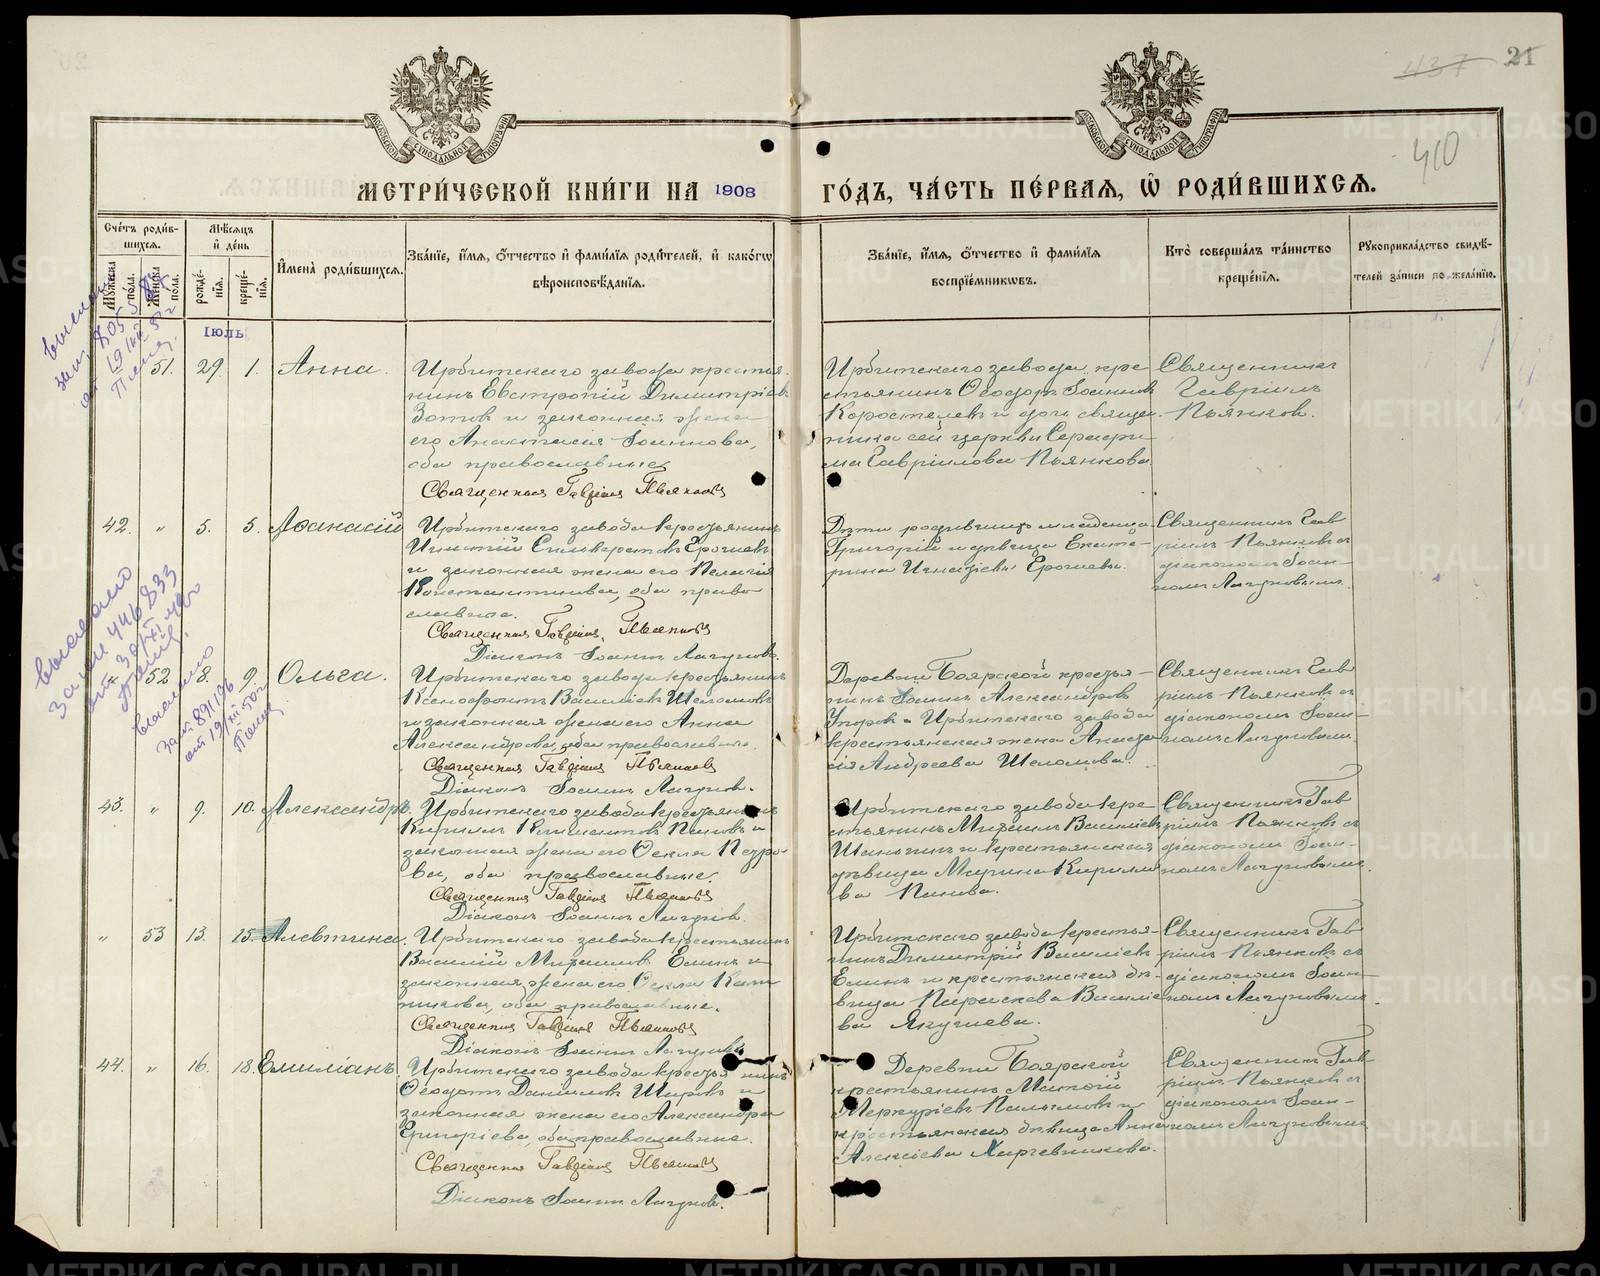 437 21
410
МЕТРИ́ЧЕСКОЙ КНИ́ГИ НА 1908 ГО́ДЪ, ЧА́СТЬ ПЕ́РВАЯ, Ѡ҆ РОДИ́ВШИХСЯ.
Сче́тъ роди́в-
шихся.
Мꙋ́жеска по́ла.
Же́нска по́ла.
Мѣ́сяцъ
и҆ де́нь
рожде́-
нїя.
креще́-
нїя.
И҆мена̀ роди́вшихся.
Зва́нїе, и҆́мя, ѻ҆́тчество и҆ фами́лїя роди́телей, и҆ како́гѡ
вѣроисповѣ́данїя.
Зва́нїе, и҆́мя, ѻ҆́тчество и҆ фами́лїя
воспрїе́мникѡвъ.
Кто̀ соверша́лъ та́инство
креще́нїя.
Рꙋкоприкла́дство свидѣ́-
телей за́писи по жела́нїю.
Іюль
51. 29. 1. Анна.
Ирбитскаго завода крестья-
нинъ Евстропій Димитріевъ
Зотов и законная жена
его Анастасія Іоаннова,
оба православные
Священникъ Гавріилъ Пьянковъ
Ирбитскаго завода кре-
стьянинъ Ѳеодоръ Іоаннов
Коростелевъ и дочь священ-
ника сей церкви Серафи-
ма Гавріилова Пьянкова
Священникъ
Гавріилъ
Пьянков.
42. " 5. 5. Аѳанасій
Ирбитскаго завода крестьянинъ
Игнатій Сильверстовъ Ерогиевъ
и законная жена его Пелагія
Константинова, оба право-
славные.
Священникъ Гавріилъ Пьянковъ
Діаконъ Іоаннъ Лагуновъ.
Дѣти родившихъ младенца
Григорій и дѣвица Екате-
рина Игнатіевы Ерогиевы.
Священникъ Гав
ріилъ Пьянковъ съ
діакономъ Іоан-
номъ Лагуновымъ.
" 52 8. 9. Ольга.
Ирбитскаго завода крестьянинъ
Ксенофонтъ Василіевъ Шеломовъ
и законная жена его Анна
Александрова, оба православные.
Священникъ Гавріилъ Пьянковъ
Діаконъ Іоаннъ Лагунов.
Деревни Боярской крестья-
нинъ Іоаннъ Александров
Упоров и Ирбитскаго завода
крестьянская жена Анаста
сія Андреева Шеломова.
Священникъ Гав
ріилъ Пьянковъ съ
діакономъ Іоан-
номъ Лагуновымъ.
43. " 9. 10. Александръ.
Ирбитскаго завода крестьянинъ
Кириллъ Климентовъ Пановъ и
законная жена его Ѳекла Петро-
ва, оба православные.
Священникъ Гавріилъ Пьянковъ
Діаконъ Іоаннъ Лагунов.
Ирбитскаго завода кре
стьянинъ Михаилъ Василіевъ
Шаньгинъ и крестьянская
дѣвица Марина Кирилло
ва Панова.
Священникъ Гав
ріилъ Пьянковъ съ
діакономъ Іоан-
номъ Лагуновымъ.
" 53 13. 15. Алевтина.
Ирбитскаго завода крестьянинъ
Василій Михаилов Елинъ и
законная жена его Ѳекла
оба православные.
Священникъ Гавріилъ Пьянковъ
Діаконъ Іоаннъ Лагуновъ
Ирбитскаго завода крестья-
нинъ Димитрій Василіевъ
Елинъ и крестьянская дѣ-
вица Параскева Василіе
ва Якушева.
Священникъ Гав
ріилъ Пьянковъ съ
діакономъ Іоан-
номъ Лагуновымъ.
44. " 16. 18. Емиліанъ.
Ирбитскаго завода крестьянинъ
Ѳеодотъ Даниловъ Шировъ и
законная жена его Александра
Григоріева, оба православные.
Священникъ Гавріилъ Пьянковъ
Діаконъ Іоаннъ Лагунов.
Деревни Боярской
крестьянинъ
Меркуріевъ и
крестьянская дѣвица Анна
Алексіева Харгевникова.
Священникъ Гав
ріилъ Пьянковъ съ
діакономъ Іоан-
номъ Лагуновымъ.
METRIKI.GASO-URAL.RU